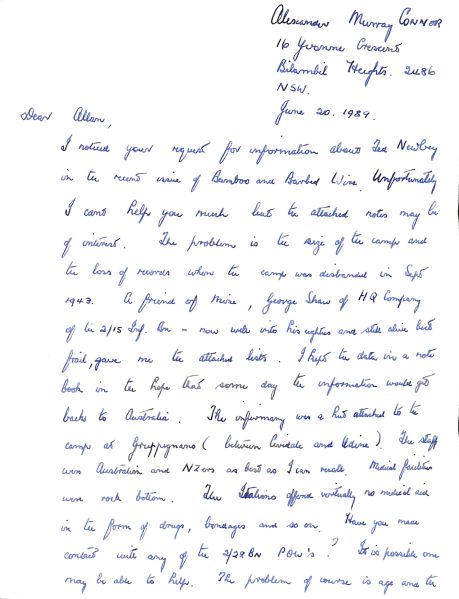 Alexander Murray CONNOR
16 Yvonne Crescent
Bilambil Heights. 2486
NSW.
June 20. 1989.
Dear Allan,
I noticed your request for information about Ted Newbey
in the recent issue of Bamboo and Barbed Wire. Unfortunately
I cant help you much but the attached notes may be
of interest. The problem is the size of the camp and
the loss of records when the camp was disbanded in Sept
1943. A friend of mine, George Shaw of HQ Company
of the 2/15 Inf. Bn - now well into his eighties and still alive but
frail, gave me the attached lists. I kept the data in a note
book in the hope that some day the information would get
back to Australia. The infirmary was a hut attached to the
camp at Gruppignano (between Cividale and Udine). The staff
were Australian and NZers as best as I can recall. Medical facilities
were rock bottom. The Italians offered virtually no medical aid
in the form of drugs, bandages and so on. Have you made
contact with any of the 2/28 BN POW's? It is possible one
may be able to help. The problem of course is age and the